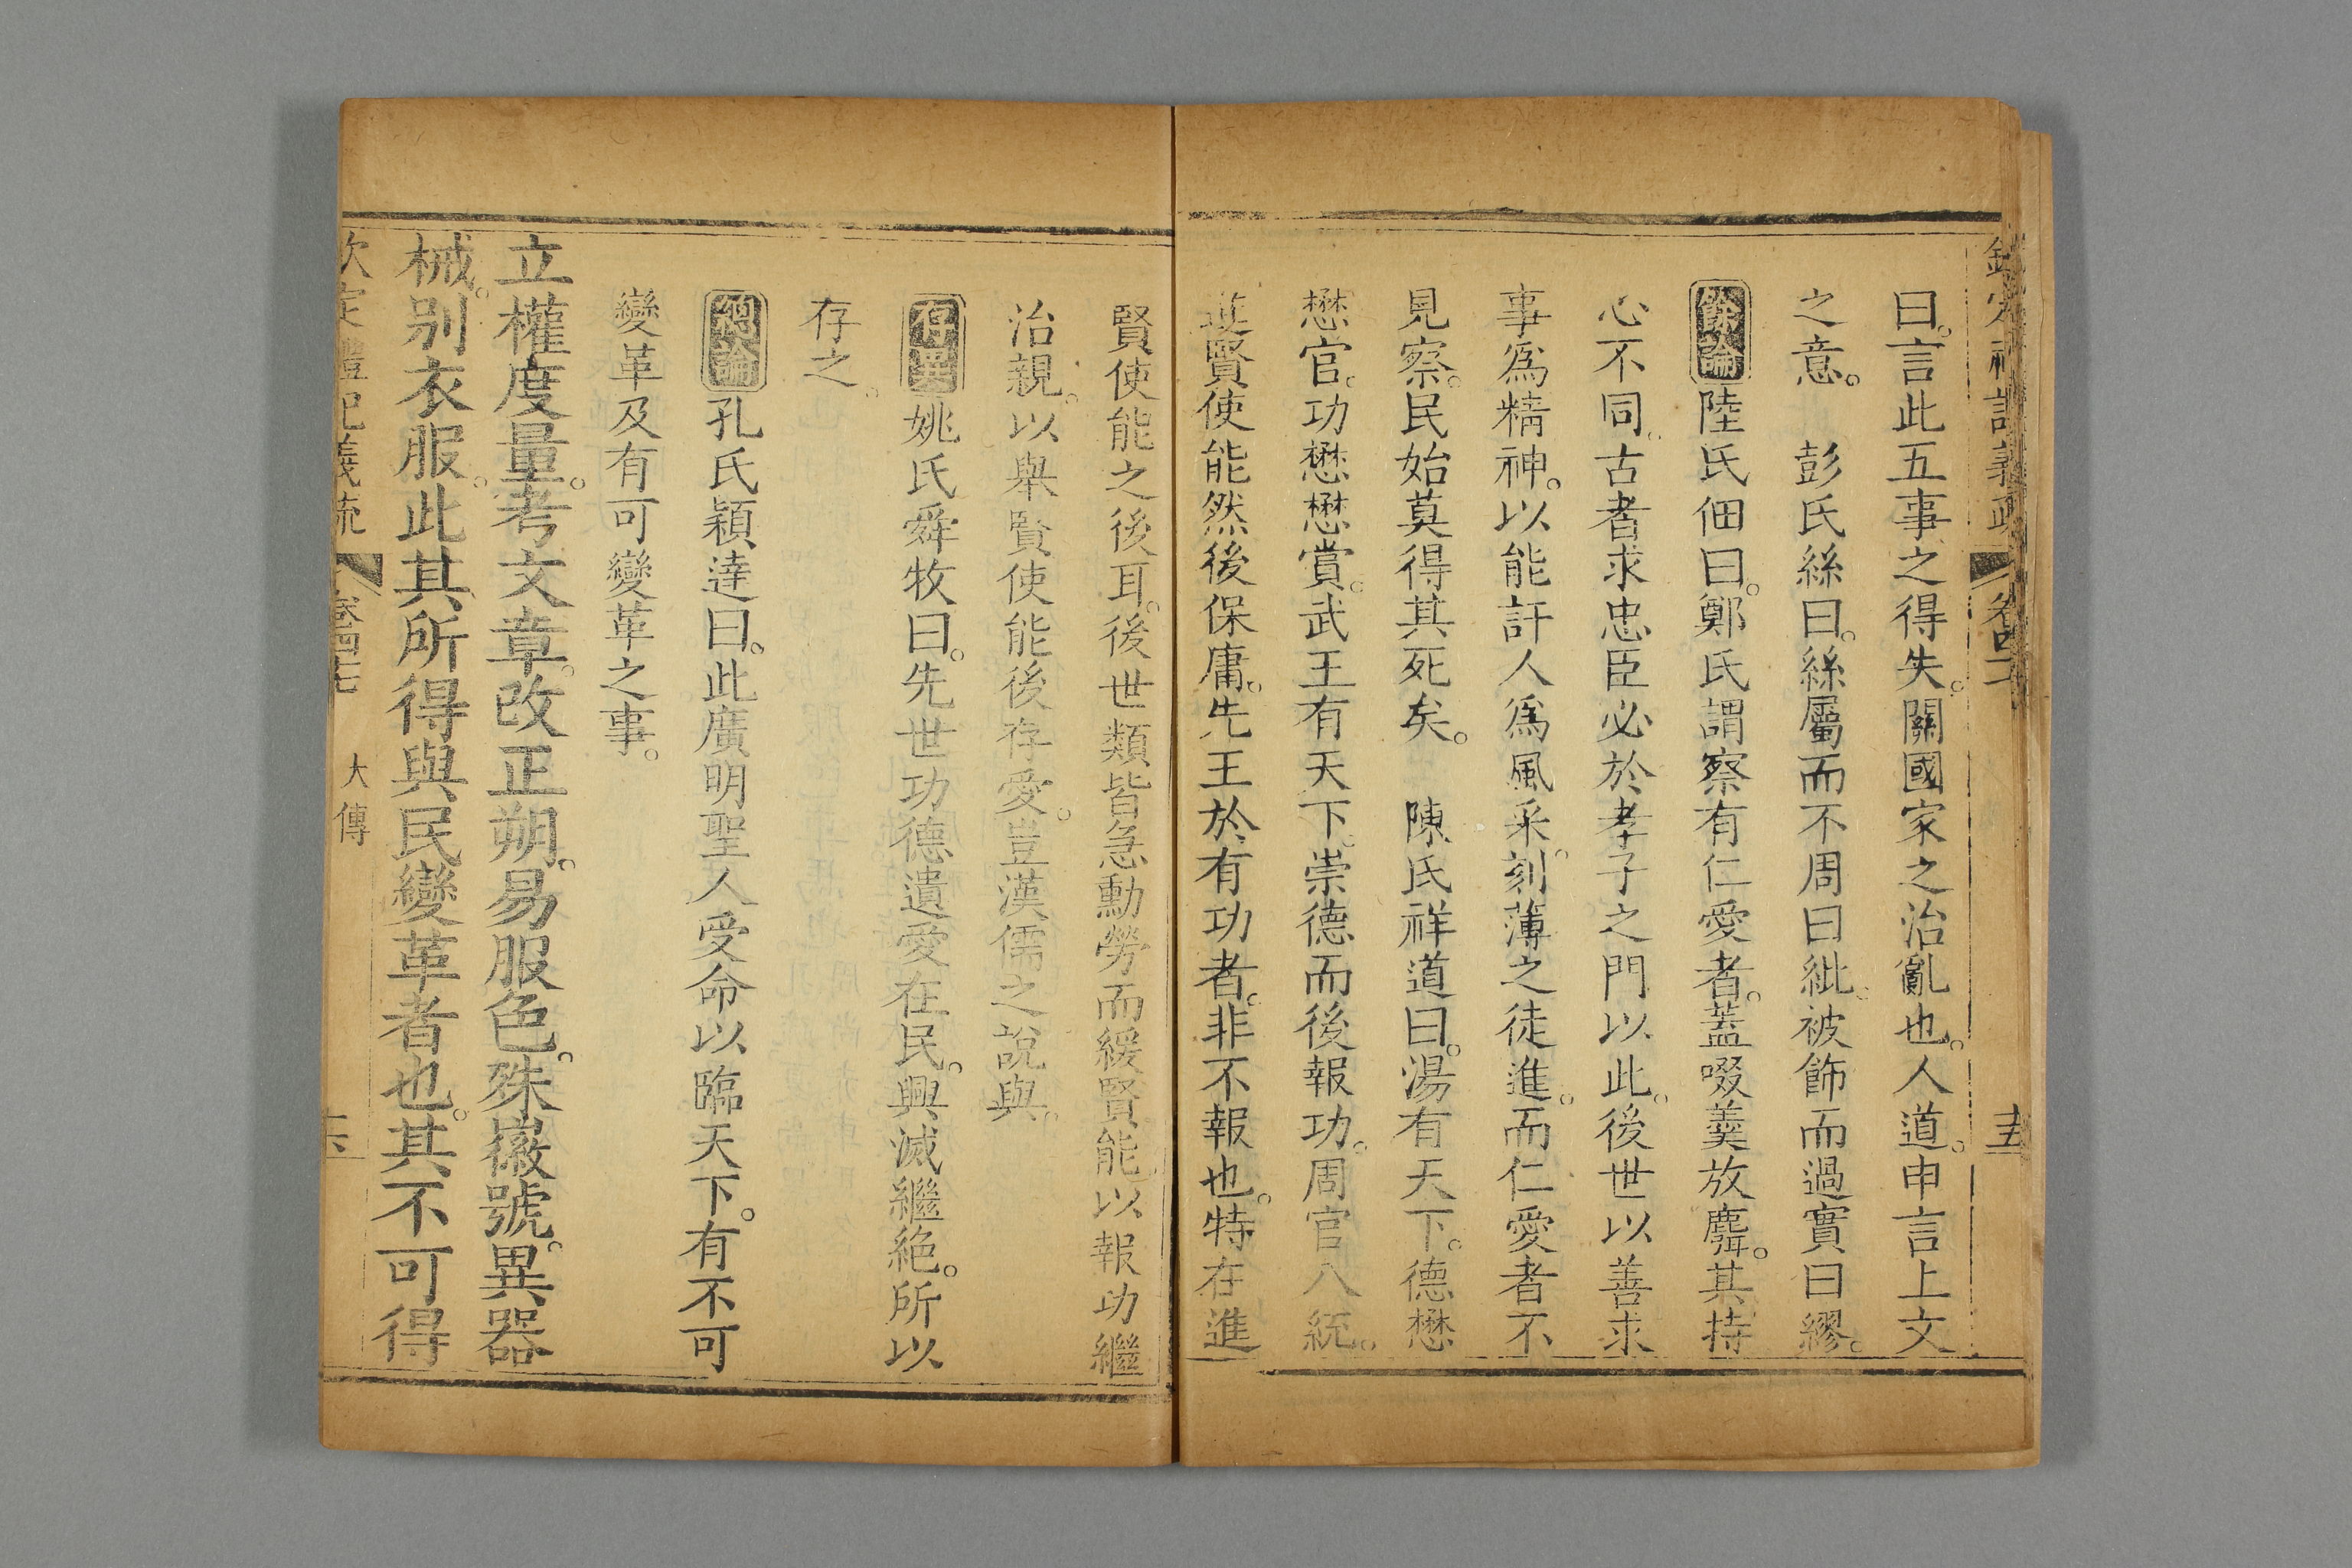 曰。言此五事之得失。關國家之治亂也。人道。申言上文
之意。　彭氏絲曰。絲屬而不周曰紕。被飾而過實曰繆。
餘論陸氏佃曰。鄭氏謂察有仁愛者。蓋啜羹放麑。其持
心不同。古者求忠臣必於孝子之門以此。後世以善求
事爲精神。以能訐人爲風采。刻薄之徒進。而仁愛者不
見察。民始莫得其死矣。　陳氏祥道曰。湯有天下。德懋
懋官。功懋懋賞。武王有天下。崇德而後報功。周官八統。
進賢使能然後保庸。先王於有功者。非不報也。特在進
賢使能之後耳。後世類皆急勳勞而緩賢能以報功繼
治親。以舉賢使能後存愛。豈漢儒之說與。
存異姚氏舜牧曰。先世功德遺愛在民。興滅繼絶。所以
存之。
總論孔氏穎達曰。此廣明聖人受命以臨天下。有不可
變革及有可變革之事。
立權度量。考文章。改正朔。易服色。殊徽號。異器
械。别衣服。此其所得與民變革者也。其不可得
欽定禮記義疏　卷四十七　大傳